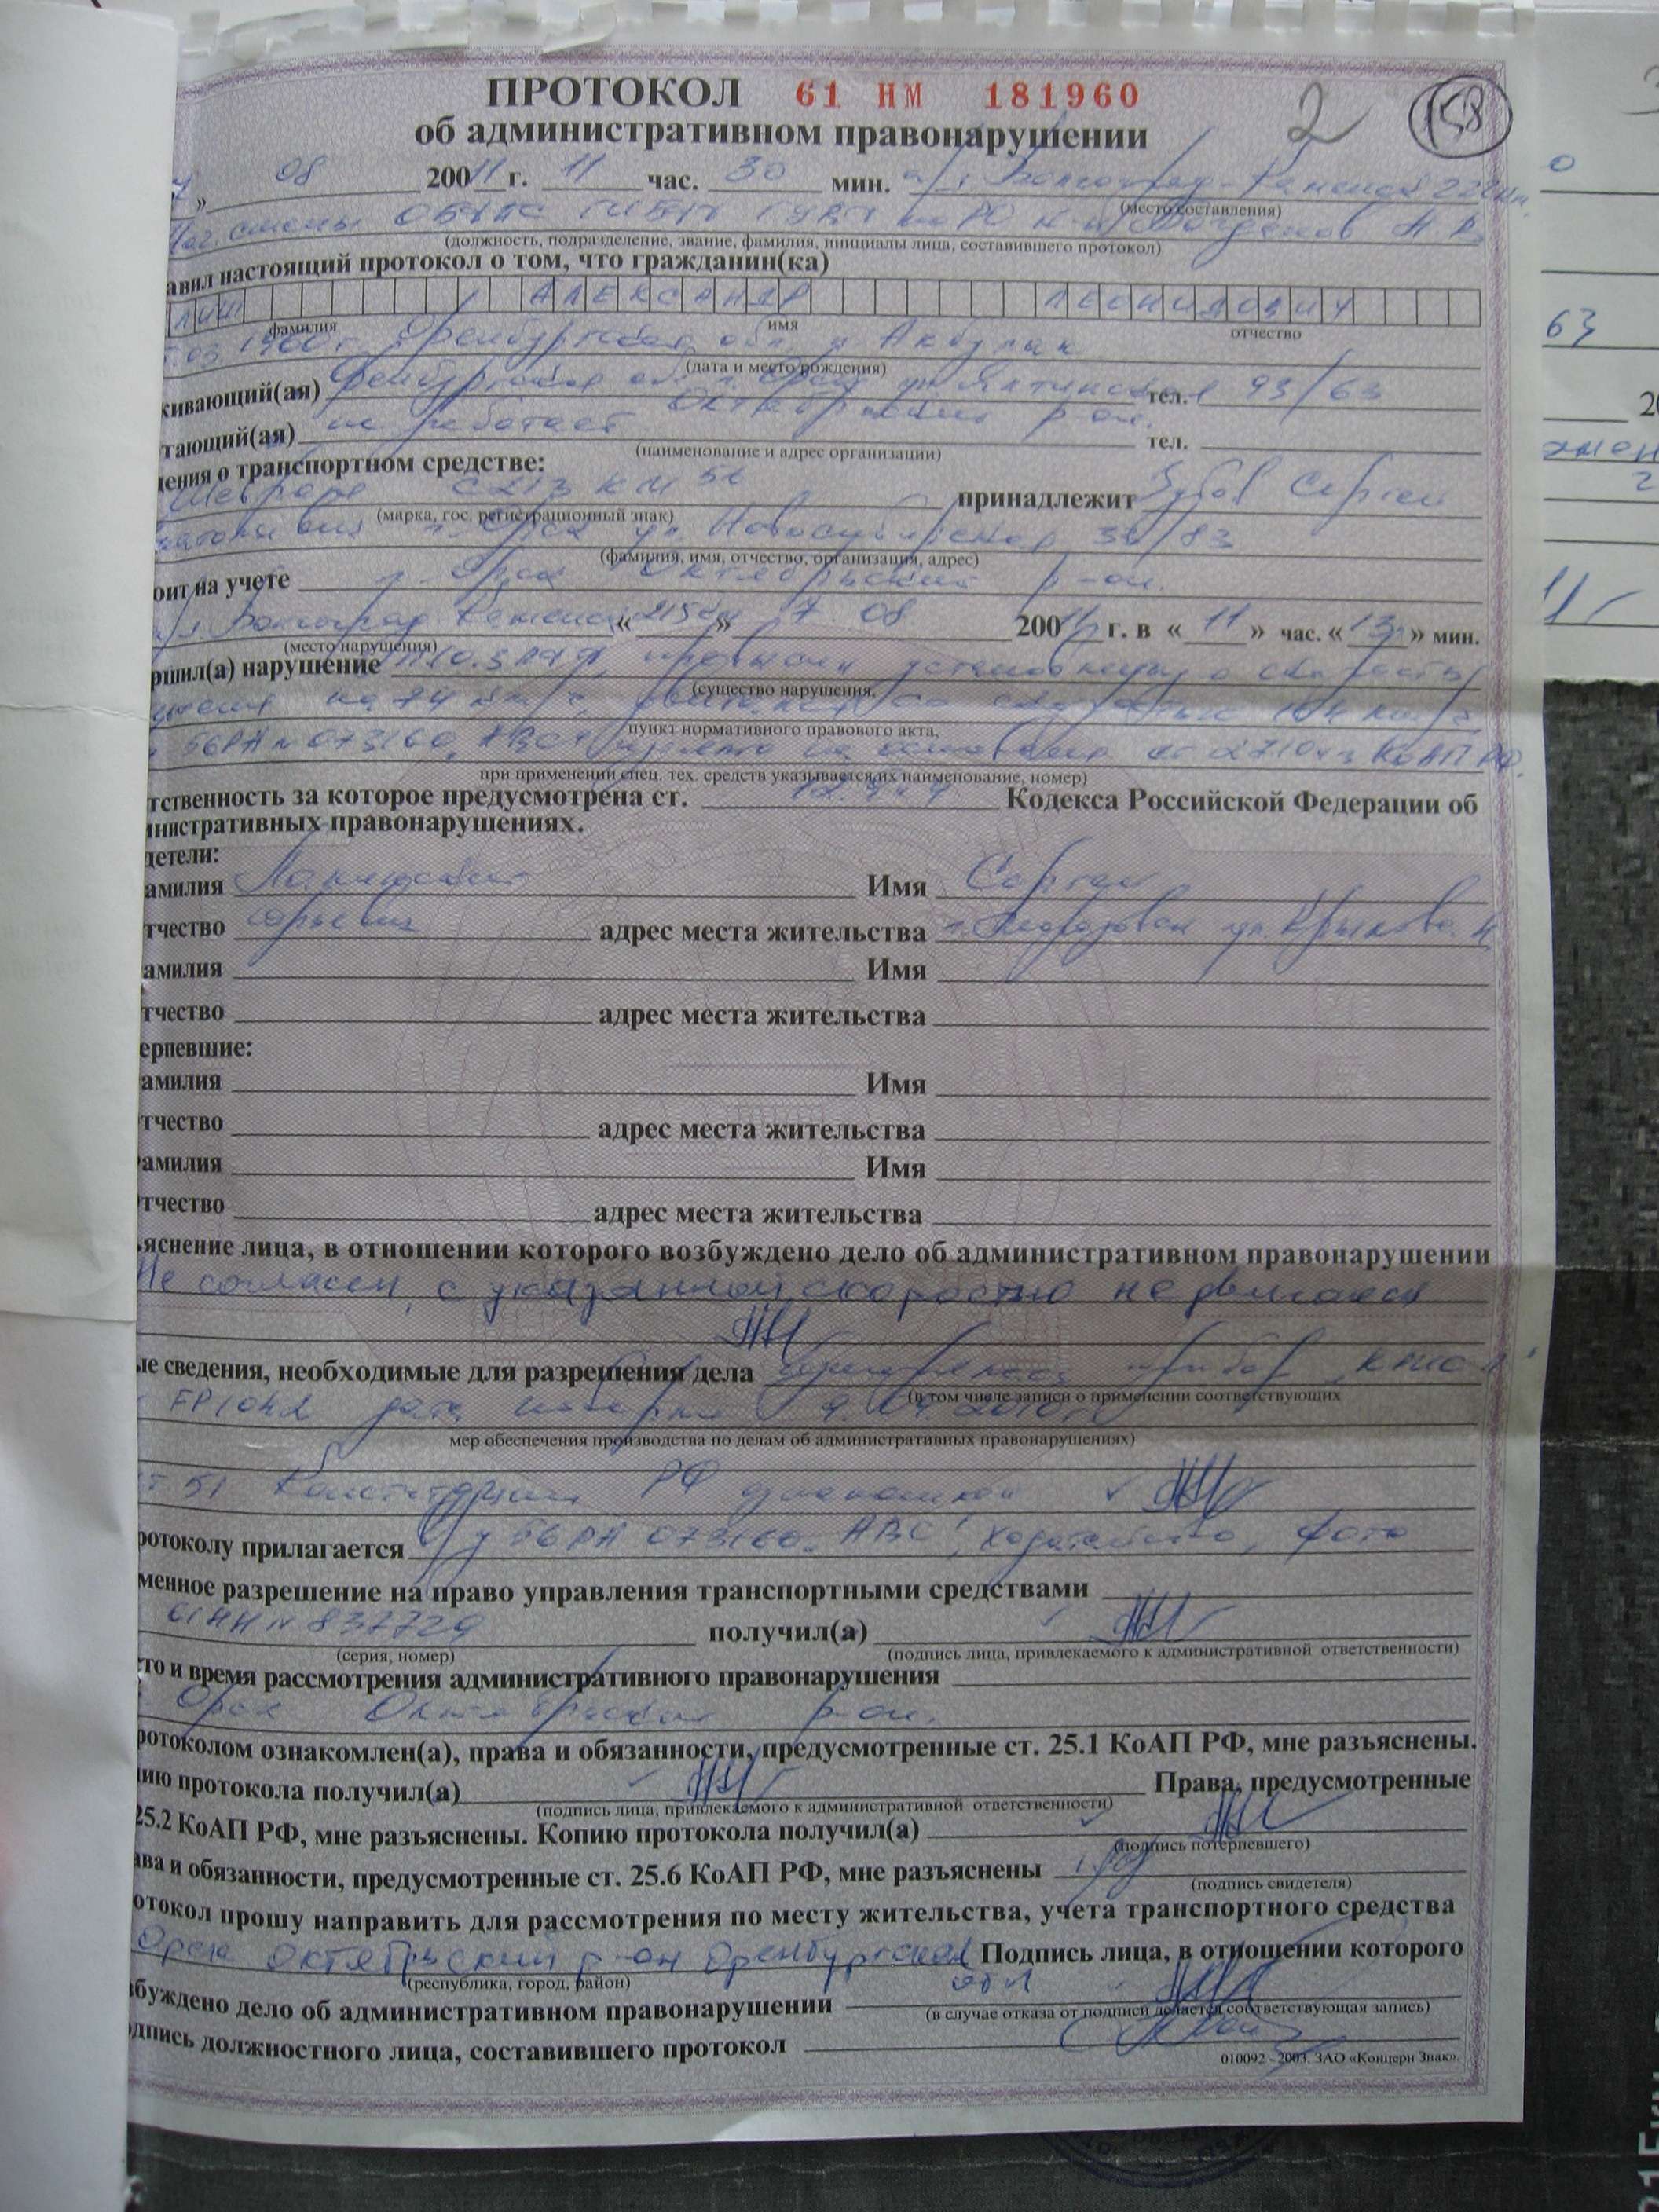 ПРОТОКОЛ 61 НМ 181960
об административном правонарушении
2 158
» 08 200 11 г. 11 час. 30 мин. Волгоград-Каменск
(место составления)
смены ОБДПС ГИБДД ГУВД по РО
(должность, подразделение, звание, фамилия, инициалы лица, составившего протокол)
авил настоящий протокол о том, что гражданин(ка)
АЛЕКСАНДР ЛЕОНИДОВИЧ
фамилия имя отчество
Оренбургская обл. п. Акбулак
(дата и место рождения)
живающий(ая) Оренбургская обл. г. Орск ул. тел. 93/63
тающий(ая) не работает Октябрьский р-он.
тел.
(наименование и адрес организации)
дения о транспортном средстве:
Шевроле С213КМ 56 принадлежит Зубов Сергей
(марка, гос. регистрационный знак)
г. Орск ул. Новосибирская 38/83
(фамилия, имя, отчество, организация, адрес)
оит на учете г. Орск Октябрьский р-он.
Волгоград Каменск « 215км » 7. 08 200 11 г. в « 11 » час. « 13 » мин.
(место нарушения)
ршил(а) нарушение п 10.3 ПДД, превысил установленную скорость
(существо нарушения,
на 74 км/ч, двигался со скоростью 164 км/ч
пункт нормативного правового акта,
56РА № 073160, изъято на основании ст 27.10 ч 3 КоАП РФ.
при применении спец. тех. средств указывается их наименование, номер)
тственность за которое предусмотрена ст. 12.9 ч 4 Кодекса Российской Федерации об
инистративных правонарушениях.
детели:
амилия Имя Сергей
тчество адрес места жительства г. Морозовск ул. Крылова
амилия Имя
тчество адрес места жительства
ерпевшие:
амилия Имя
тчество адрес места жительства
амилия Имя
тчество адрес места жительства
яснение лица, в отношении которого возбуждено дело об административном правонарушении
Не согласен, с указанной скоростью не двигался
ые сведения, необходимые для разрешения дела прибор
(в том числе записи о применении соответствующих
дата поверки 9.09.2010г
мер обеспечения производства по делам об административных правонарушениях)
ст 51 Конституции РФ ознакомлен
ротоколу прилагается в/у 56РА 073160. АВС, ходатайство, фото
менное разрешение на право управления транспортными средствами
61НН № 837729 получил(а)
(серия, номер) (подпись лица, привлекаемого к административной ответственности)
то и время рассмотрения административного правонарушения
Орск Октябрьский р-он.
ротоколом ознакомлен(а), права и обязанности, предусмотренные ст. 25.1 КоАП РФ, мне разъяснены.
ию протокола получил(а) Права, предусмотренные
(подпись лица, привлекаемого к административной ответственности)
25.2 КоАП РФ, мне разъяснены. Копию протокола получил(а)
(подпись потерпевшего)
ава и обязанности, предусмотренные ст. 25.6 КоАП РФ, мне разъяснены
(подпись свидетеля)
отокол прошу направить для рассмотрения по месту жительства, учета транспортного средства
Орск Октябрьский р-он Оренбургская обл Подпись лица, в отношении которого
(республика, город, район)
збуждено дело об административном правонарушении
(в случае отказа от подписи делается соответствующая запись)
одпись должностного лица, составившего протокол
010092 - 2003. ЗАО «Концерн Знак».
63
20